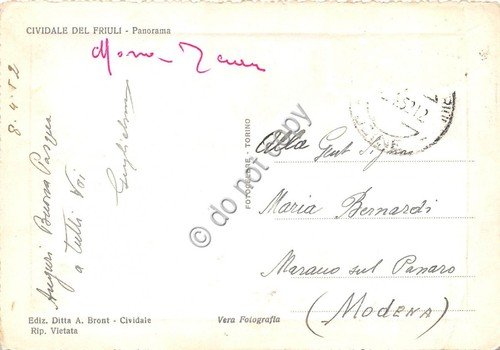 CIVIDALE DEL FRIULI - Panorama
8.4.52
Auguri Buona Pasqua
a tutti voi
Guglielmo
FOTOCELERE - TORINO
Alla Gent. Sigra
Maria Bernardi
Marano sul Panaro
(MODENA)
Ediz. Ditta A. Bront - Cividale
Rip. Vietata
Vera Fotografia
do not copy